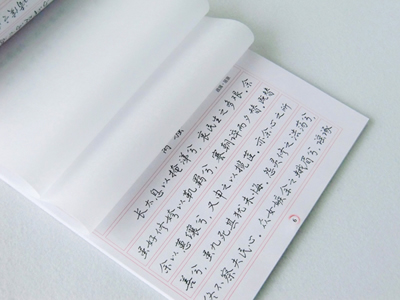 长太息以掩涕兮,哀民生之多艰。余
虽好修姱以鞿羁兮,謇朝谇而夕替。既替
余以蕙纕兮,又申之以揽茝。亦余心之所
善兮,虽九死其犹未悔。怨灵修之浩荡兮,
终不察夫民心。众女嫉余之蛾眉兮,谣诼